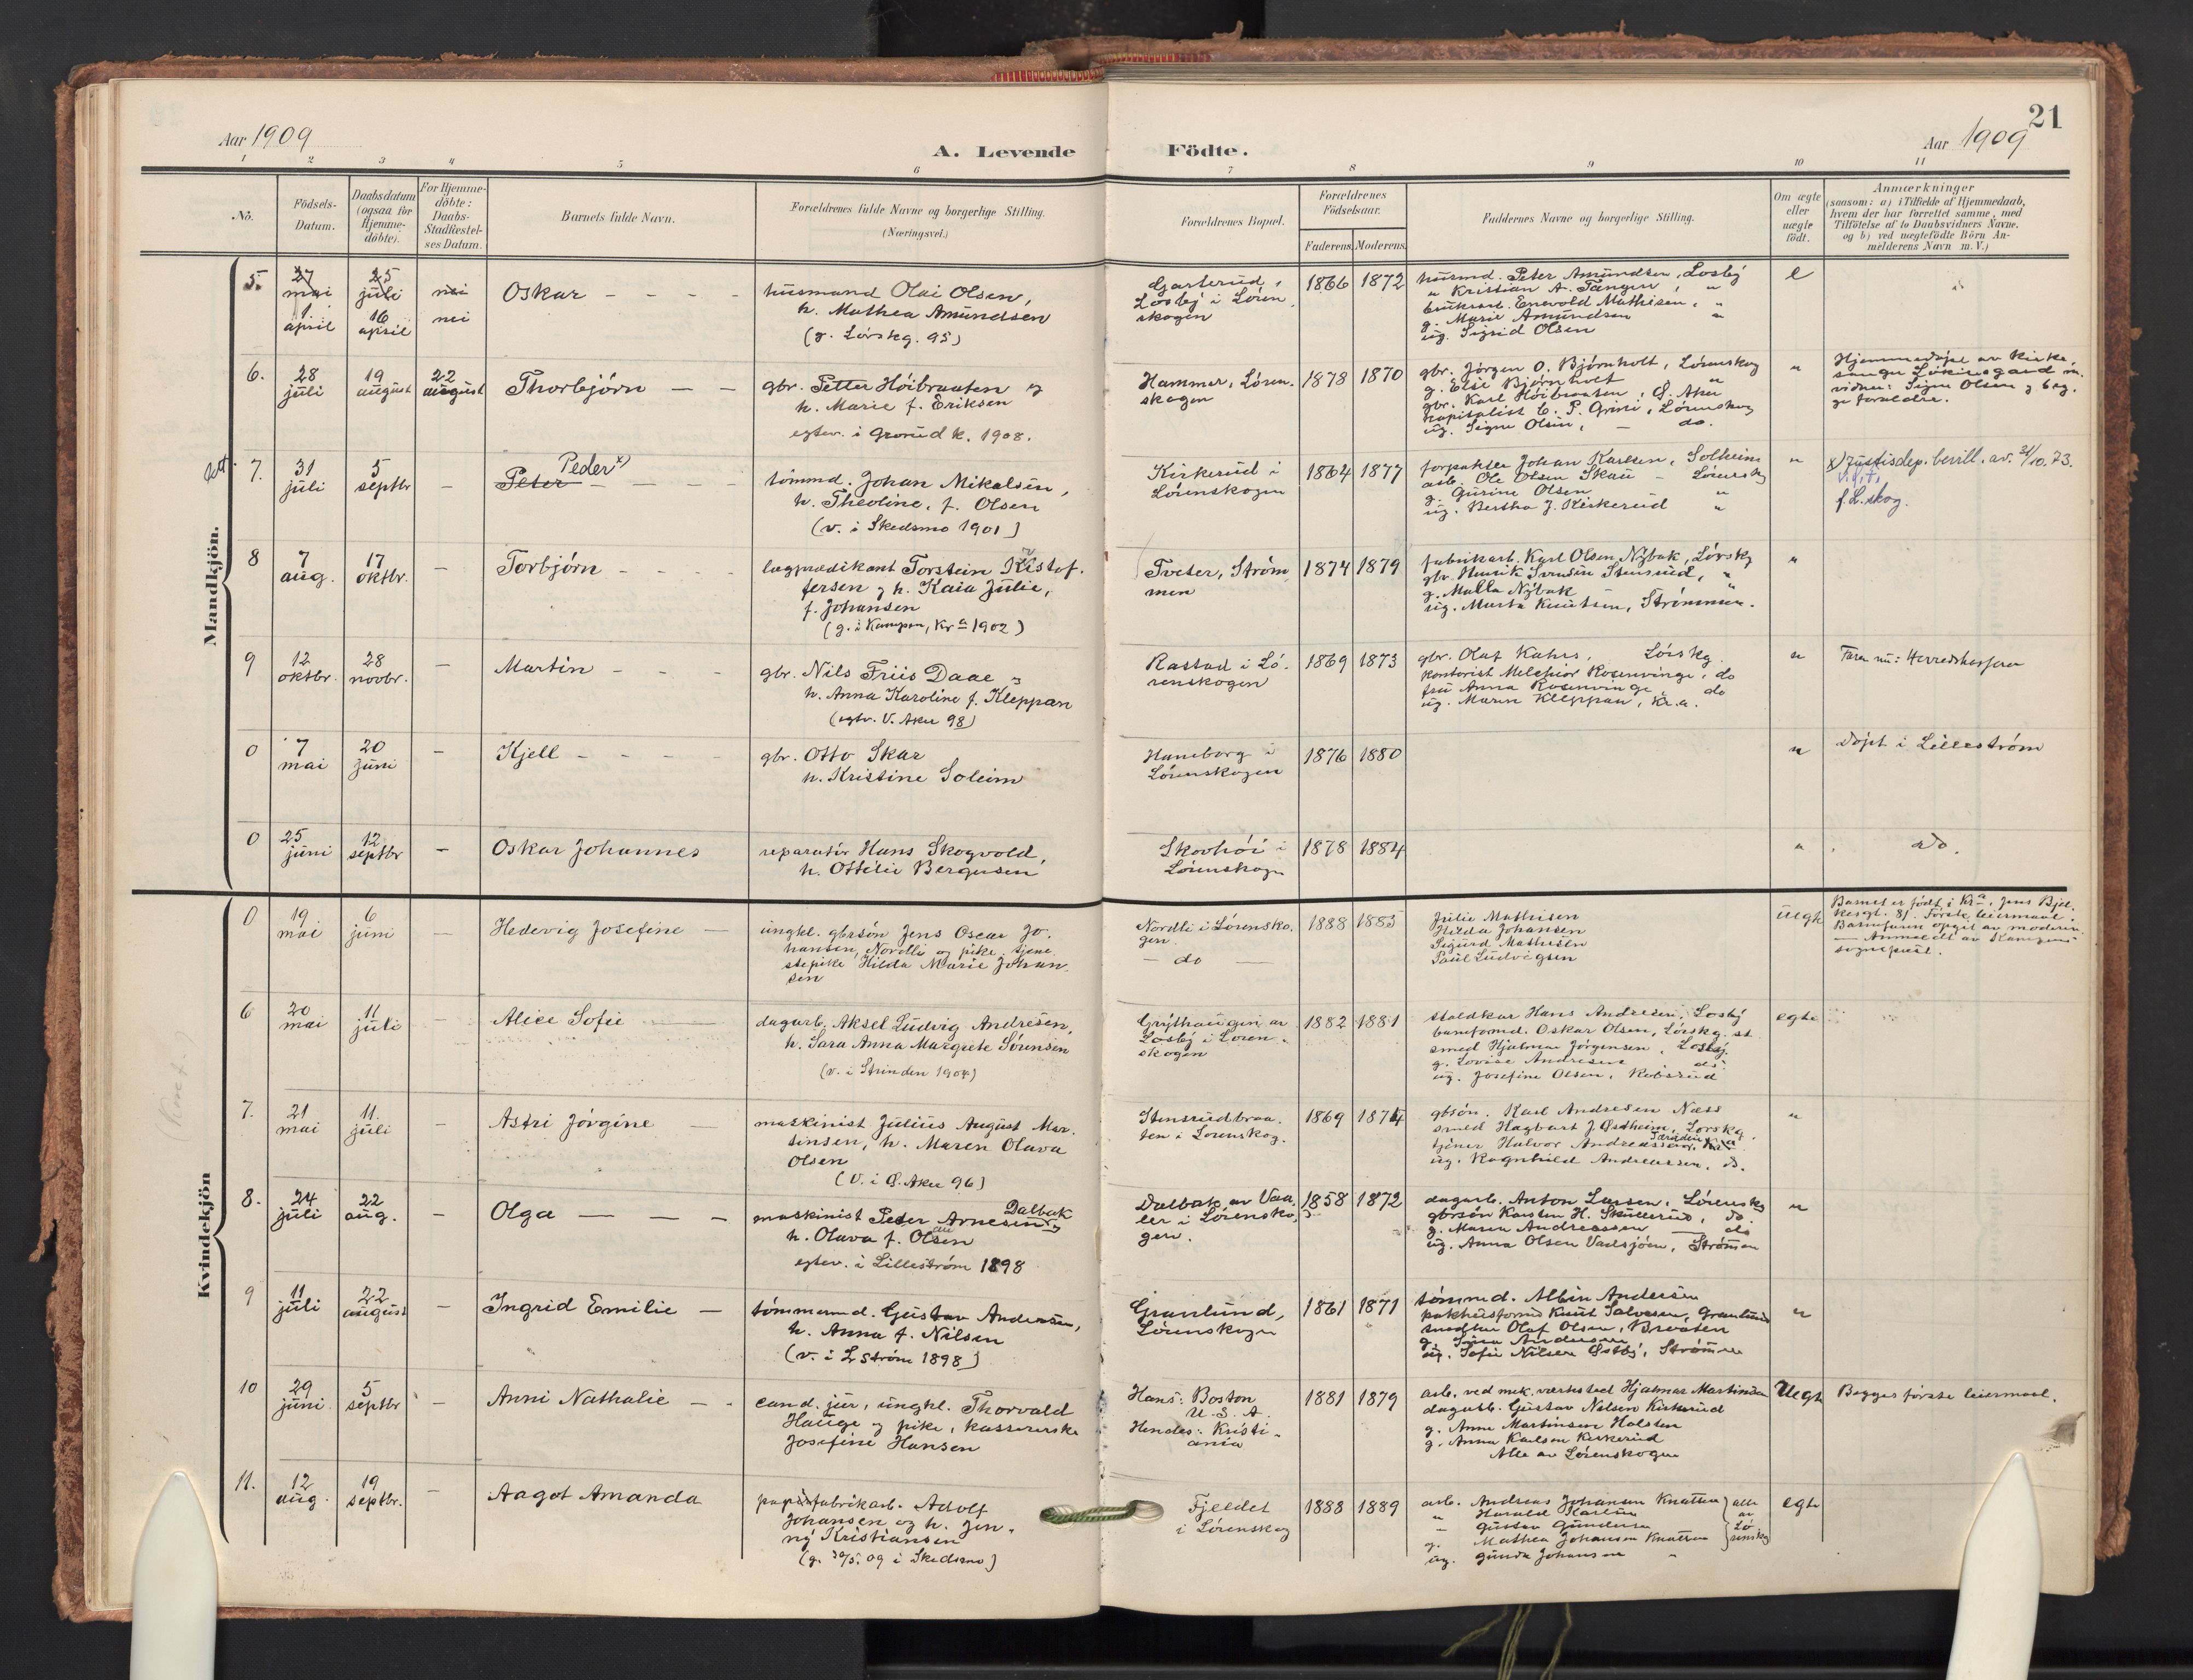 21
Aar 1909
A. Levende Födte.
Aar 1909
1 2 3 4 5 6 7 8 9 10 11
No.
Födsels-Datum.
Daabsdatum (ogsaa for Hjemme-döbte).
For Hjemme-döbte: Daabs-Stadfæstel-ses Datum.
Barnets fulde Navn.
Forældrenes fulde Navne og borgerlige Stilling. (Næringsvei.)
Forældrenes Bopæl.
Forældrenes Födselsaar.
Faderens. Moderens.
Faddernes Navne og borgerlige Stilling.
Om ægte eller uægte födt.
Anmærkninger
(saasom: a) i Tilfælde af Hjemmedaab,
hvem der har forrettet samme, med
Tilföielse af to Daabsvidners Navne.
og b) ved uægtefödte Börn An-
melderens Navn m. V.)
Mandkjön.
5. 27 mai 25 juli nei
1 april 16 april nei
Oskar
husmand Olai Olsen,
h. Mathea Amundsen
(g. Lörskg. 95)
Losby i Lören
skogen
1866 1872
husmd. Peter Amundsen, Losby
" Kristian A. Tangen, "
bruksarb. Enevold Mathisen, "
g. Marie Amundsen "
ug. Sigrid Olsen
e
6. 28 juli 19 august 22 august
Thorbjörn
gbr. Petter Höibraaten og
h. Marie f. Eriksen
egtev. i Grorud k. 1908.
Hammer, Lören-
skogen
1878 1870
gbr. Jörgen O. Bjornholt, Lörenskog
g. Elise Bjornholt "
gbr. Karl Höibraaten, Ö. Aker
kapitalist C. P. Grini, Lörenskog
ug. Signe Olsen, — do.
"
Hjemmedöpt av kirke-
7. 31 juli 5 septbr —
Peder x)
Peter
tömmd. Johan Mikalsen,
h. Theoline, f. Olsen
(v. i Skedsmo 1901)
Kirkerud i
Lörenskogen
1864 1877
forpakter Johan Karlsen, Solheim
arb. Ole Olsen Skau - Lörenskg
g. Gurine Olsen "
ug. Bertha J. Kirkerud "
"
x) Justisdep. bevill. av. 31/10.73.
f. L.skog.
8 7 aug. 17 oktbr. —
Torbjörn
lægprædikant Torstein Kristof-
fersen og h. Kaia Julie,
f. Johansen
(g. i Kampen, Kra 1902)
Tveter, Ström
men
1874 1879
fabrikarb. Karl Olsen Nybak, Lörskg
g. Malla Nybak "
ug. Marta Knutsen, Strömmen.
"
9 12 oktbr. 28 novbr. —
Martin
gbr. Nils Friis Daae og
h. Anna Karoline f. Kleppan
(egtv. V. Aker 98)
Rastad i Lö-
renskogen
1869 1873
gbr. Olaf Kahrs, Lörskg.
kontorist Melchior Rosenvinge, do
fru Anna Rosenvinge, do
ug. Maren Kleppan, Kr.a.
"
0 7 mai 20 juni —
Kjell
gbr. Otto Skar
h. Kristine Soleim
Haneborg i
Lörenskogen
1876 1880
"
döpt i Lilleström
0 25 juni 12 septbr —
Oskar Johannes
reparatör Hans Skogvold,
h. Ottilie Bergersen
Skovhöi i
Lörenskogen
1878 1884
"
do.
Kvindekjön
0 19 mai 6 juni —
Hedevig Josefine
ungkl. gbrsön Jens Oscar Jo-
hansen, Nordli og pike, tjene-
stepike Hilda Marie Johan-
sen
Nordli i Lörensko-
gen.
— do —
1888 1885
Julie Mathisen
Hilda Johansen
Sigurd Mathisen
Paul Ludvigsen
uegte
Barnet er födt i Kra, Jens Bjel-
kesgt. 81. Förste leiermaal.
Barnefaren opgit av moderen.
— Anmeldt av Kampens
sognepræst.
6 20 mai 11 juli —
Alice Sofie
dagarb. Aksel Ludvig Andresen,
h. Sara Anna Margrete Sörensen
(v. i Strinden 1904)
Grythaugen av
Losby i Lören-
skogen
1882 1881
staldkar Hans Andresen, Losby
baneformd. Oskar Olsen, Lörskg. st
smed Hjalmar Jörgensen, Losby.
g. Lovise Andresen do.
ug. Josefine Olsen, Robsrud
egte
7. 21 mai 11. juli —
Astri Jörgine
maskinist Julius August Mar-
tinsen, h. Maren Olava
Olsen
(v. i Ö. Aker 96)
Stensrudbraa-
ten i Lörenskog.
1869 1874
gbsön. Karl Andresen Næss
smed Hagbart J. Östheim, Lörskg.
tjener Halvor Andreassen,
ug. Ragnhild Andreassen, do.
"
8. 24 juli 22 aug. —
Olga
maskinist Peder Arnesen Dalbak og
h. Olava f. Olsen
egtev. i Lilleström 1898
Dalbak av Vaa-
ler i Lörensko-
gen.
1858 1872
dagarb. Anton Larsen, Lörenskg
gbrsön Karsten H. Skullerud, do.
g. Maren Andreassen — do
ug. Anna Olsen Vaelsjöen, Strömmen
"
9 11 juli 22 august —
Ingrid Emilie
tömmermd. Gustav Andersen,
h. Anna f. Nilsen
(v. i L.ström 1898)
Granlund,
Lörenskogen
1861 1871
tömmd. Albin Andersen
pakhusformd Knut Salvesen, Granlund
Olaf Olsen, Braaten
ug. Sofie Nilsen Östby, Strömmen
"
10 29 juni 5 septbr —
Anni Nathalie
cand. jur, ungkl. Thorvald
Hauge og pike, kassererske
Josefine Hansen
Hans: Boston
U.S.A.
Hendes: Kristi-
ania
1881 1879
arb. ved mek. værksted Hjalmar Martinsen
dagarb. Gustav Nilsen Kirkerud
g. Anne Martinsen Holsten
g. Anna Karlsen Kirkerud
Alle av Lörenskogen
Uegte
Begges förste leiermaal.
11. 12 aug. 19 septbr. —
Aagot Amanda
papirfabrikarb. Adolf
Johansen og h. Jen-
ny Kristiansen
(g. 30/5. 09 i Skedsmo)
Fjeldet
i Lörenskog
1888 1889
arb. Andreas Johansen Knatten
" Harald Karlsen
" Gustav Gundersen
g. Mathea Johansen Knatten
ug. Gunda Johansen "
alle av Lörenskog
egte